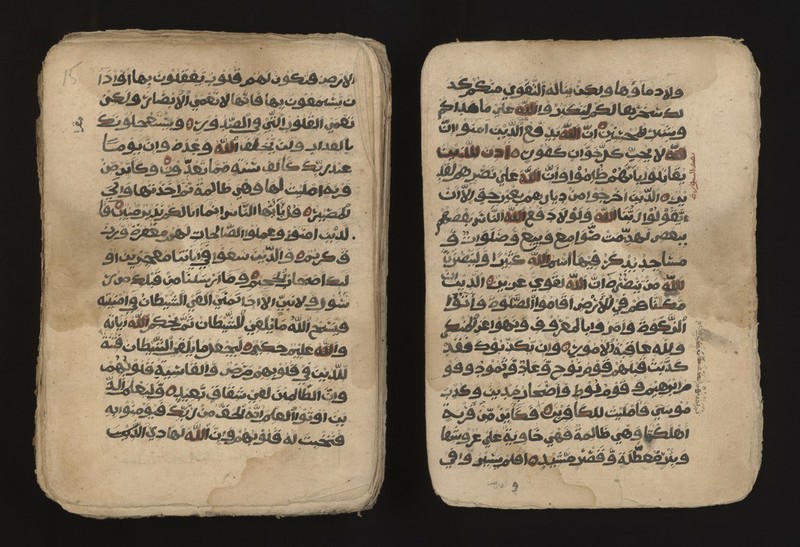 ولا دماؤها ولكن يناله التقوى منكم كذ
لك سخرها لكم لتكبروا الله على ما هداكم
وبشر المحسنين ان الله يدفع عن الذين امنوا ان
الله لا يحب كل خوان كفور اذن للذين
يقاتلون بانهم ظلموا وان الله على نصرهم لقد
ير الذين اخرجوا من ديارهم بغير حق الا ان
يقولوا ربنا الله ولولا دفع الله الناس بعضهم
ببعض لهدمت صوامع وبيع وصلوات و
مساجد يذكر فيها اسم الله كثيرا ولينصرن
الله من ينصره ان الله لقوي عزيز الذين ان
مكناهم في الارض اقاموا الصلوة واتوا
الزكوة وامروا بالمعروف ونهوا عن المنكر
ولله عاقبة الامور وان يكذبوك فقد
كذبت قبلهم قوم نوح وعاد وثمود وقو
م ابرهيم وقوم لوط واصحاب مدين وكذب
موسى فامليت للكافرين فكأين من قرية
اهلكناها وهي ظالمة فهي خاوية على عروشها
وبئر معطلة وقصر مشيد افلم يسيروا في
15
الارض فتكون لهم قلوب يعقلون بها او اذا
ن يسمعون بها فانها لا تعمى الابصار ولكن
تعمى القلوب التي في الصدور ويستعجلونك
بالعذاب ولن يخلف الله وعده وان يوما
عند ربك كالف سنة مما تعدون وكأين من
قرية امليت لها وهي ظالمة ثم اخذتها والي
المصير قل يأيها الناس انما انا لكم نذير مبين فا
لذين امنوا وعملوا الصالحات لهم مغفرة ورز
ق كريم والذين سعوا في اياتنا معجزين او
لئك اصحاب الجحيم وما ارسلنا من قبلك من ر
سول ولا نبي الا اذا تمنى القى الشيطان في امنيته
فينسخ الله ما يلقي الشيطان ثم يحكم الله اياته
والله عليم حكيم ليجعل ما يلقي الشيطان فتنة
للذين في قلوبهم مرض والقاسية قلوبهم
وان الظالمين لفي شقاق بعيد وليعلم الذ
ين اوتوا العلم انه الحق من ربك فيؤمنوا به
فتخبت له قلوبهم وان الله لهادي الذين